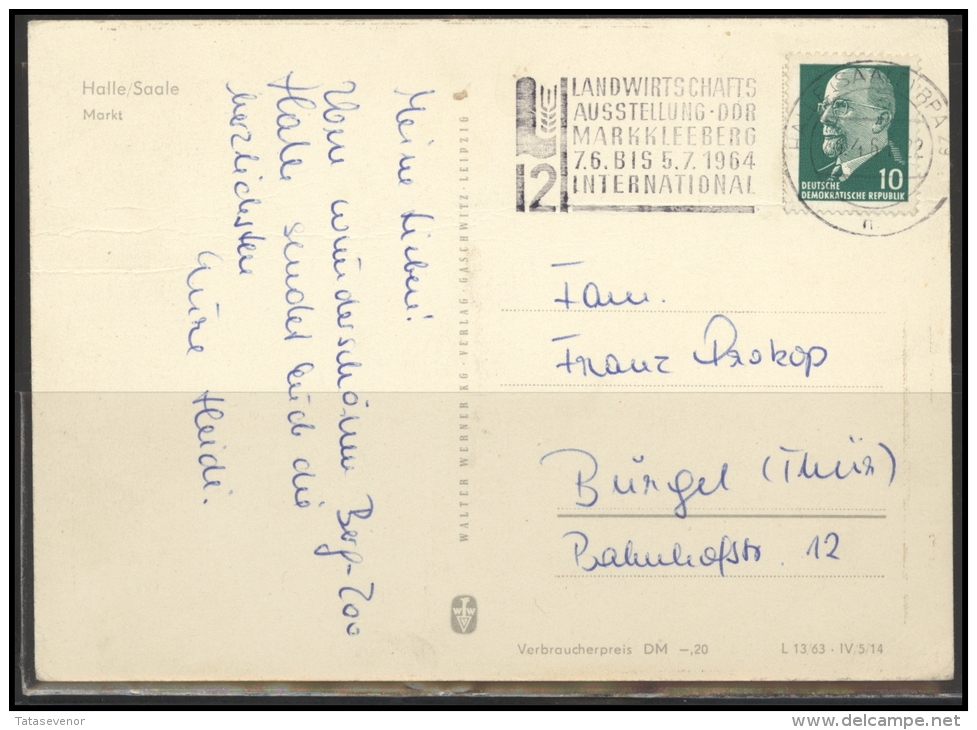 Halle/Saale
Markt
Meine Lieben!
Vom wunderschönen Berg-Zoo
Halle sendet Euch die
herzlichsten
Eure Heidi.
WALTER WERNER KG · VERLAG · GASCHWITZ · LEIPZIG
LANDWIRTSCHAFTS
AUSSTELLUNG · DDR
MARKKLEEBERG
7.6. BIS 5.7.1964
INTERNATIONAL
12
DEUTSCHE
DEMOKRATISCHE REPUBLIK
10
Fam.
Franz Prokop
Bürgel (Thür)
Bahnhofstr 12
Verbraucherpreis DM –,20
L 13/63 · IV/5/14
Tatasevenor
www.delcampe.net